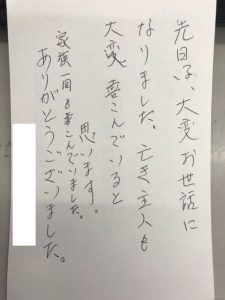 先日は、大変お世話に
なりました。亡き主人も
大変喜こんでいると
思います。
家族一同も喜こんでいました。
ありがとうございました。